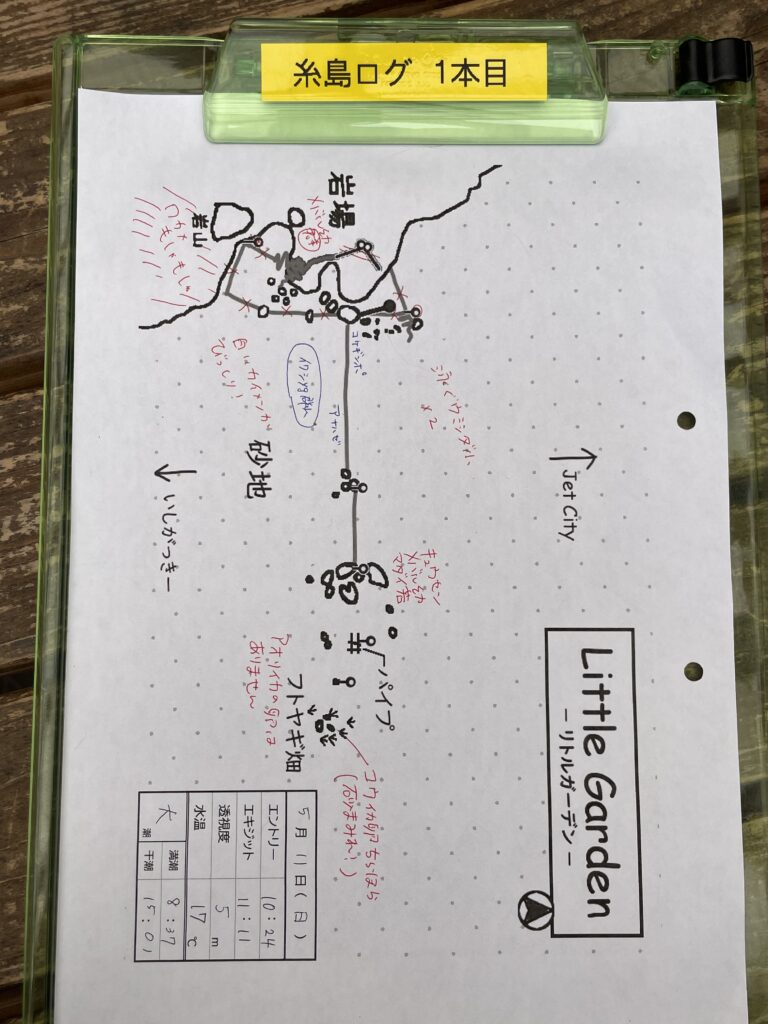 糸島ログ 1本目
Little Garden
ーリトルガーデンー
↑ Jet City
岩場
岩山
メバル幼
ワカメ
もしゃもしゃ
コケギンポ
泳ぐウミシダ
×2
アナハゼ
白いカイメンが
びっしり!
砂地
↓ いじがっきー
キュウセン
メバル幼
マダイ若
パイプ
フトヤギ畑
アオリイカの卵は
ありません
コウイカ卵ちらほら
(砂まみれ!)
5月11日(日)
エントリー 10:24
エキジット 11:11
透視度 5 m
水温 17 ℃
大潮 満潮 8:37
干潮 15:01